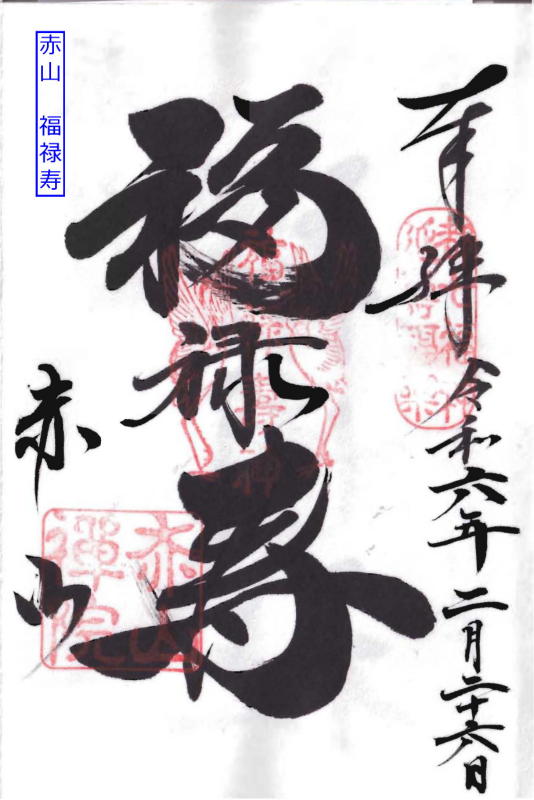 奉拝
令和六年二月二十六日
福禄寿
赤山
赤山
禅院
赤山 福禄寿